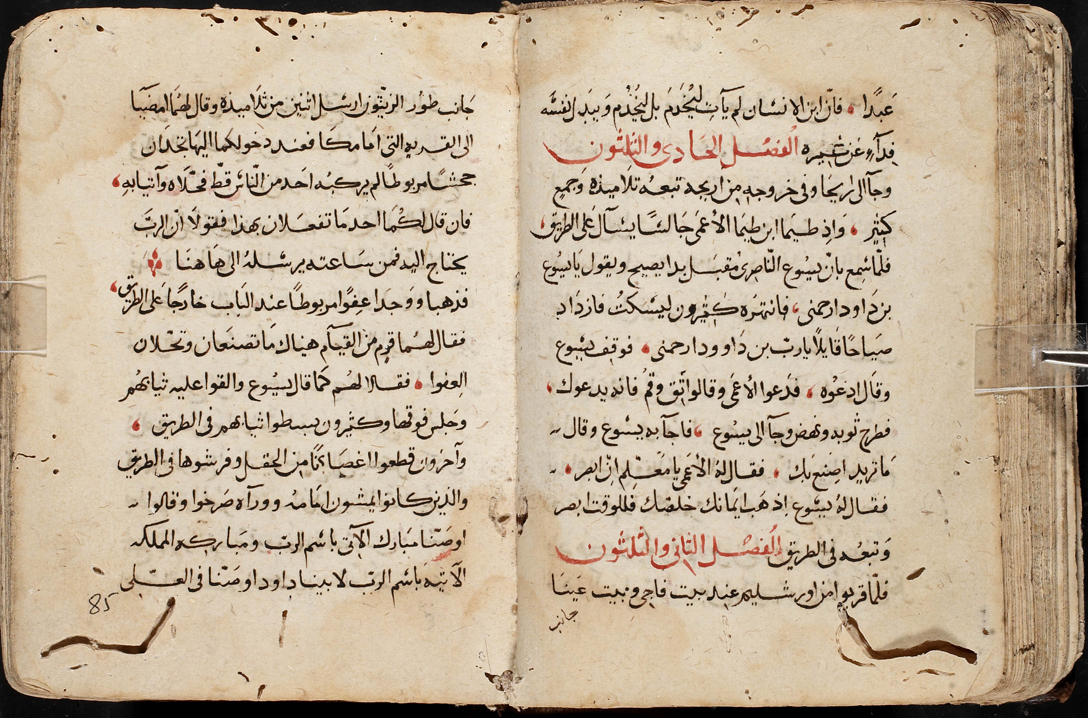 عبدًا ، فانّ ابن الانسان لم يأت ليُخدَم بل ليَخدُم ويبدل نفسَه
فدآء عن كثيره الفصل الحادي والثلثون
وجآ الى اريحا وفي خروجه من اريحه تبعه تلاميذه وجمع
كثير ، واذ طيما ابن طيما الأعمى جالسًا يسآل على الطريق،
فلمّا سمع بانّ يسوع النّاصرى مقبل بدا يصيح ويقول يا يسوع
بن داود ارحمنى ، فانتهره كثيرون ليسكت فازداد
صياحًا قايلاً يا ربّ بن داوود ارحمنى ، فوقف يسوع
وقال ادعوه ، فدعوا الأعمى وقالوا ثق وقم فانه يدعوك،
فطرح ثوبه ونهض وجآ الى يسوع ، فاجابه يسوع وقال
ما تريد اصنع بك ، فقال له الاعمى يا معلم ان ابصر ،
فقال لهُ يسوع اذهب ايمانك خلصك فللوقت ابصر
وتبعه في الطريق الفصل الثاني والثلثون
فلمّا قربوا من اورشليم عند بيت فاجى وبيت عَينَا
جانب
جانب طور الزيتون ارسل اثنين من تلاميذه وقال لهمَا امضيَا
الى القريه التى امامكما فعند دخولكما اليها تجدان
جحشًا مربوطًا لم يركبه احد من النّاس قطّ فحُلّاه وآتيا به،
فان قال لكُما احد مَا تفعلان بهذا فقولا انّ الربّ
يحتاج اليه فمن ساعته يرسلهُ الى هَاهنا
فذهبا ووجدا عفوًا مربوطًا عند البَاب خارجًا على الطريق،
فقال لهما قوم من القيآم هناك مَا تصنعان وتحلان
العفوا ، فقالا لهم كمَا قال يسُوع والقوا عليه ثيابهُم
وجلس فوقها وكثيرون بسطوا ثيابهم في الطريق ،
وآخرون قطعوا اغصَانًا من الحقل وفرشوها في الطريق
والذين كانوا يمشون امامه وورآه صَرخوا وقالوا
اوصَنّا مبارك الآتى باسم الربّ ومباركه المملكه
الآتيه باسم الربّ لابينا داود اوصَنّا في العُلى
85